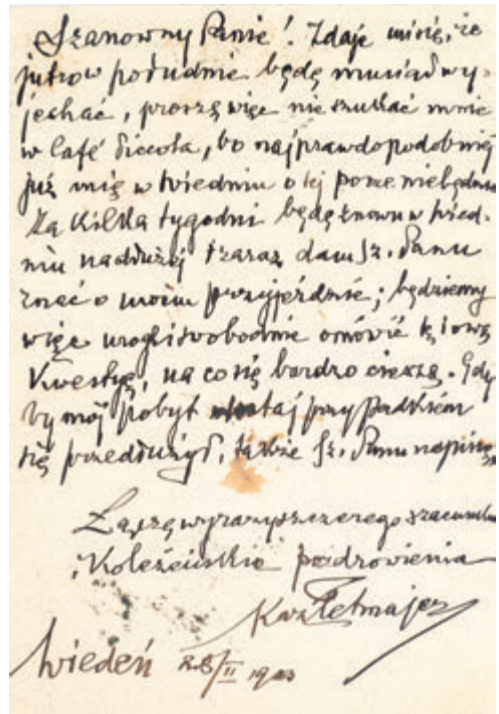 Szanowny Panie! Zdaje mi się, że
jutro w południe będę musiał wy-
jechać, proszę więc nie szukać mnie
w Café Piccola, bo najprawdopodobniej
już mię w Wiedniu o tej porze nie będzie.
Za kilka tygodni będę znowu w Wied-
niu na dłużej i zaraz dam Sz. Panu
znać o moim przyjeździe; będziemy
więc mogli swobodnie omówić tę
kwestyę, na co się bardzo cieszę. Gdy
by mój pobyt tutaj przypadkiem
się przedłużył, także Sz. Panu napiszę.
Łączę wyrazy szczerego szacunku
i koleżeńskie pozdrowienia
Kaz Tetmajer
Wiedeń 28/II